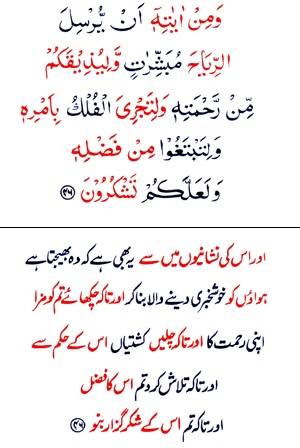 وَمِنْ اٰیٰتِهٖۤ اَنْ یُّرْسِلَ
الرِّیَاحَ مُبَشِّرٰتٍ وَّلِیُذِیْقَكُمْ
مِّنْ رَّحْمَتِهٖ وَلِتَجْرِیَ الْفُلْكُ بِاَمْرِهٖ
وَلِتَبْتَغُوْا مِنْ فَضْلِهٖ
وَلَعَلَّكُمْ تَشْكُرُوْنَ ﴿۴۶﴾
اور اس کی نشانیوں میں سے یہ بھی ہے کہ وہ بھیجتا ہے
ہواؤں کو خوشخبری دینے والا بنا کر اور تاکہ چکھائے تم کو مزا
اپنی رحمت کا اور تاکہ چلیں کشتیاں اس کے حکم سے
اور تاکہ تلاش کرو تم اس کا فضل
اور تاکہ تم اس کے شکر گزار بنو ﴿۴۶﴾